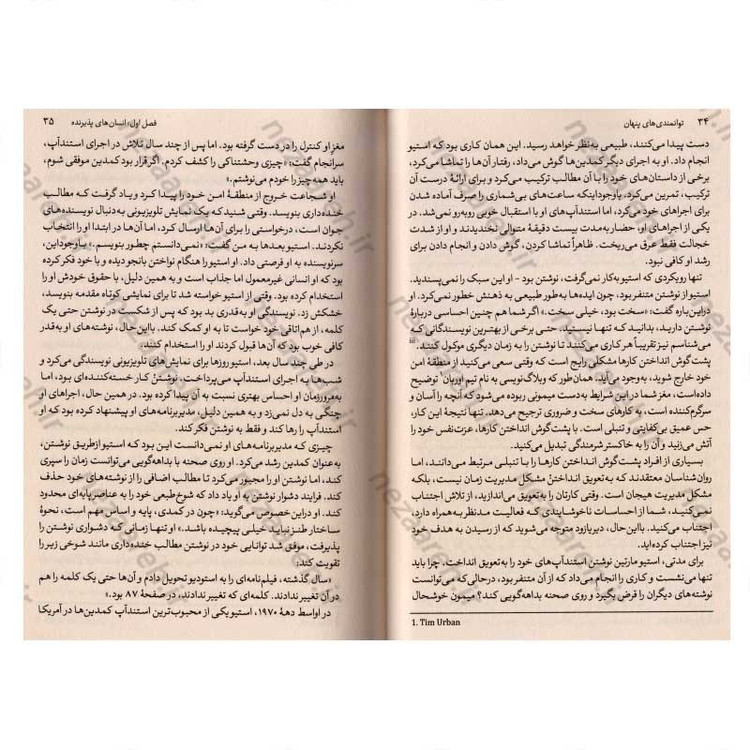 ۳۴ توانمندی‌های پنهان
دست پیدا می‌کنند، طبیعی به‌نظر خواهد رسید. این همان کاری بود که استیو
انجام داد. او به اجرای دیگر کمدین‌ها گوش می‌داد، رفتار آن‌ها را تماشا می‌کرد،
برخی از داستان‌های خود را با آن مطالب ترکیب می‌کرد و برای ارائهٔ درست آن
ترکیب، تمرین می‌کرد. باوجوداینکه ساعت‌های بی‌شماری را صرف آماده شدن
برای اجراهای خود می‌کرد، اما استندآپ‌های او با استقبال خوبی روبه‌رو نمی‌شد. در
یکی از اجراهای او، حضار به‌مدت بیست دقیقهٔ متوالی نخندیدند و او از شدت
خجالت فقط عرق می‌ریخت. ظاهراً تماشا کردن، گوش دادن و انجام دادن برای
رشد او کافی نبود.
تنها رویکردی که استیو به‌کار نمی‌گرفت، نوشتن بود - او این سبک را نمی‌پسندید.
استیو از نوشتن متنفر بود، چون ایده‌ها به‌طور طبیعی به ذهنش خطور نمی‌کرد. او
دراین‌باره گفت: «سخت بود، خیلی سخت.» اگر شما هم چنین احساسی دربارهٔ
نوشتن دارید، بدانید که تنها نیستید. حتی برخی از بهترین نویسندگانی که
می‌شناسم نیز تقریباً هر کاری می‌کنند تا نوشتن را به زمان دیگری موکول کنند.
پشت‌گوش انداختن کارها مشکلی رایج است که وقتی سعی می‌کنید از منطقهٔ امن
خود خارج شوید، به‌وجود می‌آید. همان‌طور که وبلاگ‌نویسی به نام تیم اوربان۱ توضیح
داده‌است، مغز شما در این شرایط به‌دست میمونی ربوده می‌شود که آنچه را آسان و
سرگرم‌کننده است، به کارهای سخت و ضروری ترجیح می‌دهد. تنها نتیجهٔ این کار،
حس عمیق بی‌کفایتی و تنبلی است. با پشت‌گوش انداختن کارها، عزت‌نفس خود را
آتش می‌زنید و آن را به خاکستر شرمندگی تبدیل می‌کنید.
بسیاری از افراد پشت‌گوش انداختن کارها را با تنبلی مرتبط می‌دانند، اما
روان‌شناسان معتقدند که به‌تعویق انداختن مشکل مدیریت زمان نیست، بلکه
مشکل مدیریت هیجان است. وقتی کارتان را به‌تعویق می‌اندازید، از تلاش اجتناب
نمی‌کنید، شما از احساسات ناخوشایندی که فعالیت مدنظر به‌همراه دارد،
اجتناب می‌کنید. بااین‌حال، دیریازود متوجه می‌شوید که از رسیدن به هدف خود
نیز اجتناب کرده‌اید.
برای مدتی، استیو مارتین نوشتن استندآپ‌های خود را به‌تعویق انداخت. چرا باید
تنها می‌نشست و کاری را انجام می‌داد که از آن متنفر بود، درحالی‌که می‌توانست
نوشته‌های دیگران را قرض بگیرد و روی صحنه بداهه‌گویی کند؟ میمون خوشحال
1. Tim Urban
فصل اول: انسان‌های پذیرنده ۳۵
مغز او کنترل را در دست گرفته بود. اما پس از چند سال تلاش در اجرای استندآپ،
سرانجام گفت: «چیزی وحشتناکی را کشف کردم. اگر قرار بود کمدین موفقی شوم،
باید همه‌چیز را خودم می‌نوشتم.»
او شجاعت خروج از منطقهٔ امن خود را پیدا کرد و یاد گرفت که مطالب
خنده‌داری بنویسد. وقتی شنید که یک نمایش تلویزیونی به‌دنبال نویسنده‌های
جوان است، درخواستی را برای آن‌ها ارسال کرد، اما آن‌ها در ابتدا او را انتخاب
نکردند. استیو بعدها به من گفت: «نمی‌دانستم چطور بنویسم.» باوجوداین،
سرنویسنده به او فرصتی داد. او استیو را هنگام نواختن بانجو دیده و با خود فکر کرده
بود که او انسانی غیرمعمول اما جذاب است و به همین دلیل، با حقوق خودش او را
استخدام کرده بود. وقتی از استیو خواسته شد تا برای نمایشی کوتاه مقدمه بنویسد،
خشکش زد. نویسندگی او به‌قدری بد بود که پس از شکست در نوشتن حتی یک
کلمه، از هم‌اتاقی خود خواست تا به او کمک کند. بااین‌حال، نوشته‌های او به‌قدر
کافی خوب بود که آن‌ها قبول کردند او را استخدام کنند.
در طی چند سال بعد، استیو روزها برای نمایش‌های تلویزیونی نویسندگی می‌کرد و
شب‌ها به اجرای استندآپ می‌پرداخت. نوشتن کار خسته‌کننده‌ای بود، اما
به‌مرورزمان او احساس بهتری نسبت به آن پیدا کرده بود. در همین حال، اجراهای او
چنگی به دل نمی‌زد و به همین دلیل، مدیربرنامه‌های او پیشنهاد کرده بود که او
استندآپ را رها کند و فقط به نوشتن فکر کند.
چیزی که مدیربرنامه‌های او نمی‌دانست این بود که استیو ازطریق نوشتن،
به‌عنوان کمدین رشد می‌کرد. او روی صحنه با بداهه‌گویی می‌توانست زمان را سپری
کند، اما نوشتن او را مجبور می‌کرد تا مطالب اضافی را از نوشته‌های خود حذف
کند. فرایند دشوار نوشتن به او یاد داد که شوخ‌طبعی خود را به عناصر پایه‌ای محدود
کند. او دراین‌خصوص می‌گوید: «چون در کمدی، پایه و اساس مهم است، نحوهٔ
ساختار طنز نباید خیلی پیچیده باشد.» او تنها زمانی که دشواری نوشتن را
پذیرفت، موفق شد توانایی خود در نوشتن مطالب خنده‌داری مانند شوخی زیر را
تقویت کند:
«سال گذشته، فیلم‌نامه‌ای را به استودیو تحویل دادم و آن‌ها حتی یک کلمه را هم
در آن تغییر ندادند. کلمه‌ای که تغییر ندادند، در صفحهٔ ۸۷ بود.»
در اواسط دههٔ ۱۹۷۰، استیو یکی از محبوب‌ترین استندآپ کمدین‌ها در آمریکا
nezaareh.ir